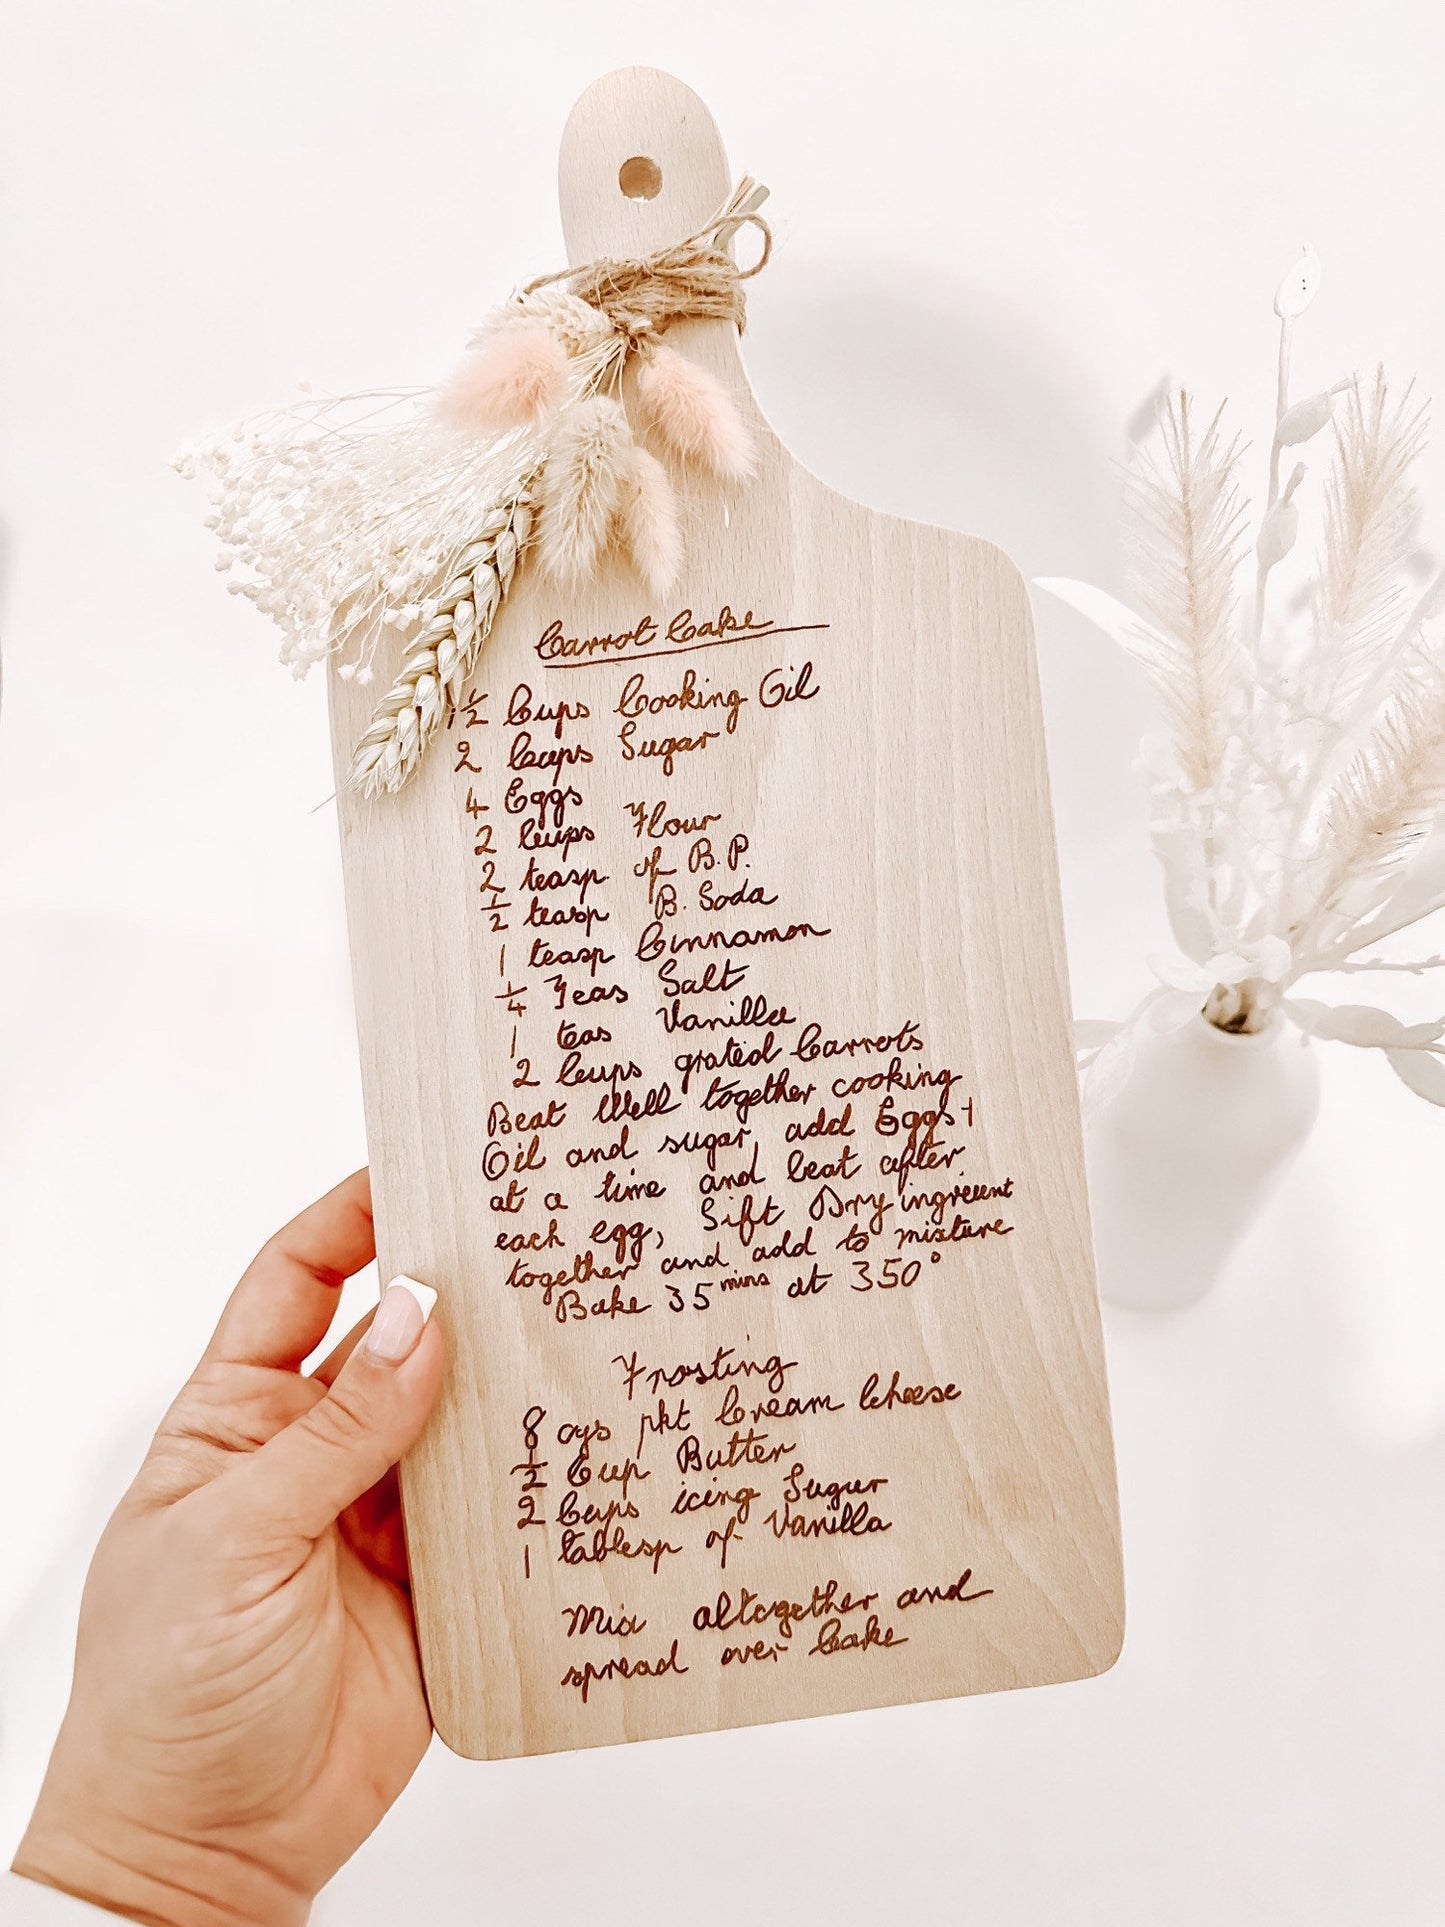 Carrot Cake
1 1/2 Cups Cooking Oil
2 Cups Sugar
4 Eggs
2 Cups Flour
2 teasp. of B.P.
1/2 teasp B. Soda
1 teasp Cinnamon
1/4 Teas Salt
1 teas Vanilla
2 Cups grated Carrots
Beat Well together cooking
Oil and sugar, add Eggs 1
at a time and beat after
each egg, Sift Dry ingreient
together and add to mixture
Bake 35 mins at 350°
Frosting
8 ozs pkt Cream Cheese
1/2 Cup Butter
2 Cups icing Sugar
1 tablesp of Vanilla
Mix altogether and
spread over Cake